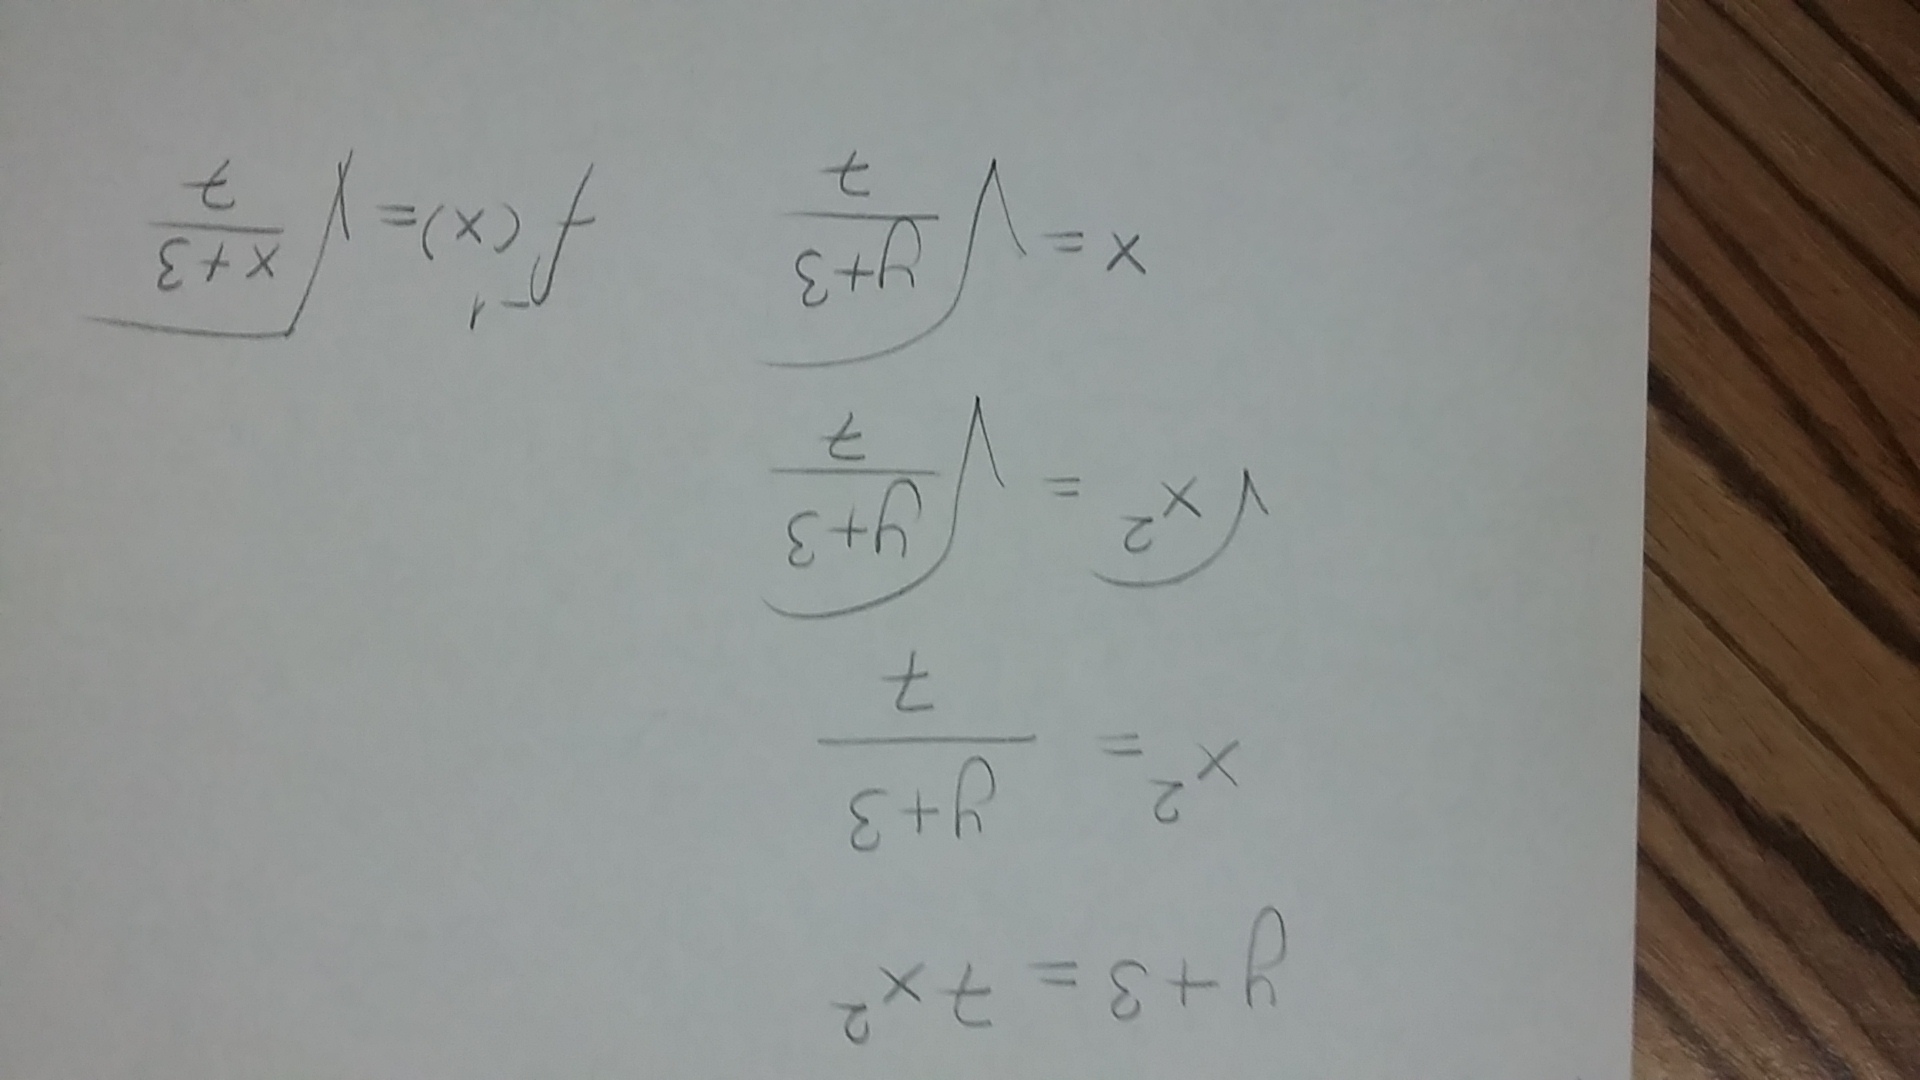 y+3 = 7x²
x² = (y+3)/7
√x² = √((y+3)/7)
x = √((y+3)/7)
f⁻¹(x) = √((x+3)/7)